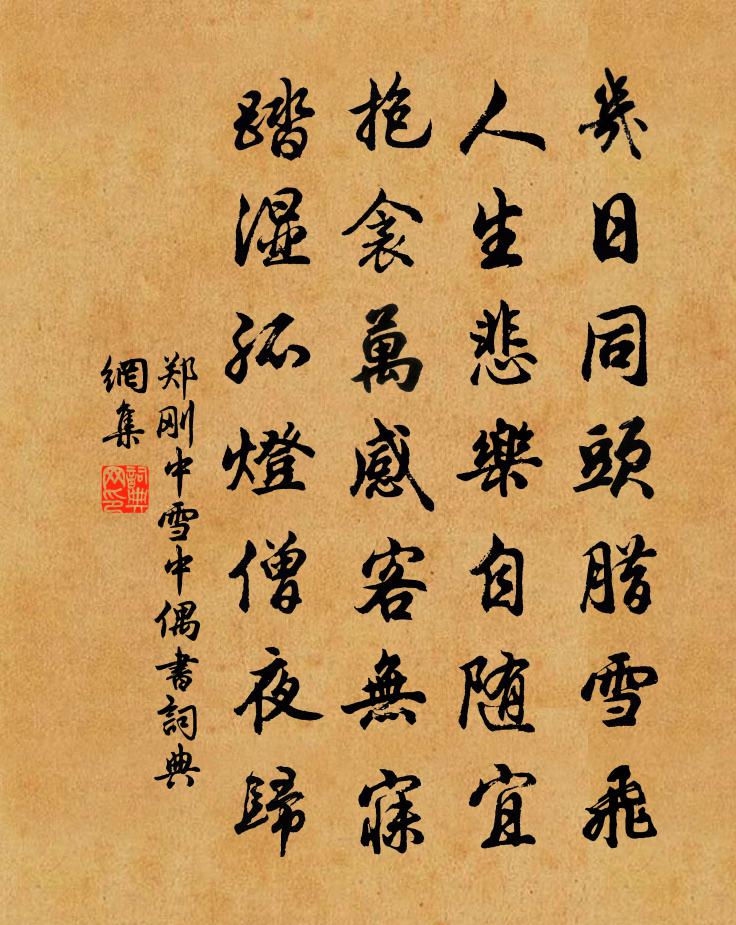 幾日同頭腊雪飛
人生悲樂自随宜
抱衾萬感客無寐
踏湿孤燈僧夜歸
郑刚中雪中偶書詞典
網集
詞典
网印